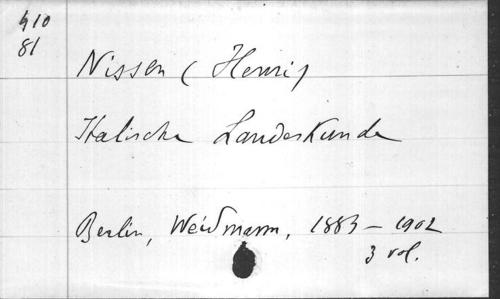 410
81
Nissen (Henri)
Italische Landeskunde
Berlin, Weidmann, 1883 - 1902
3 vol.